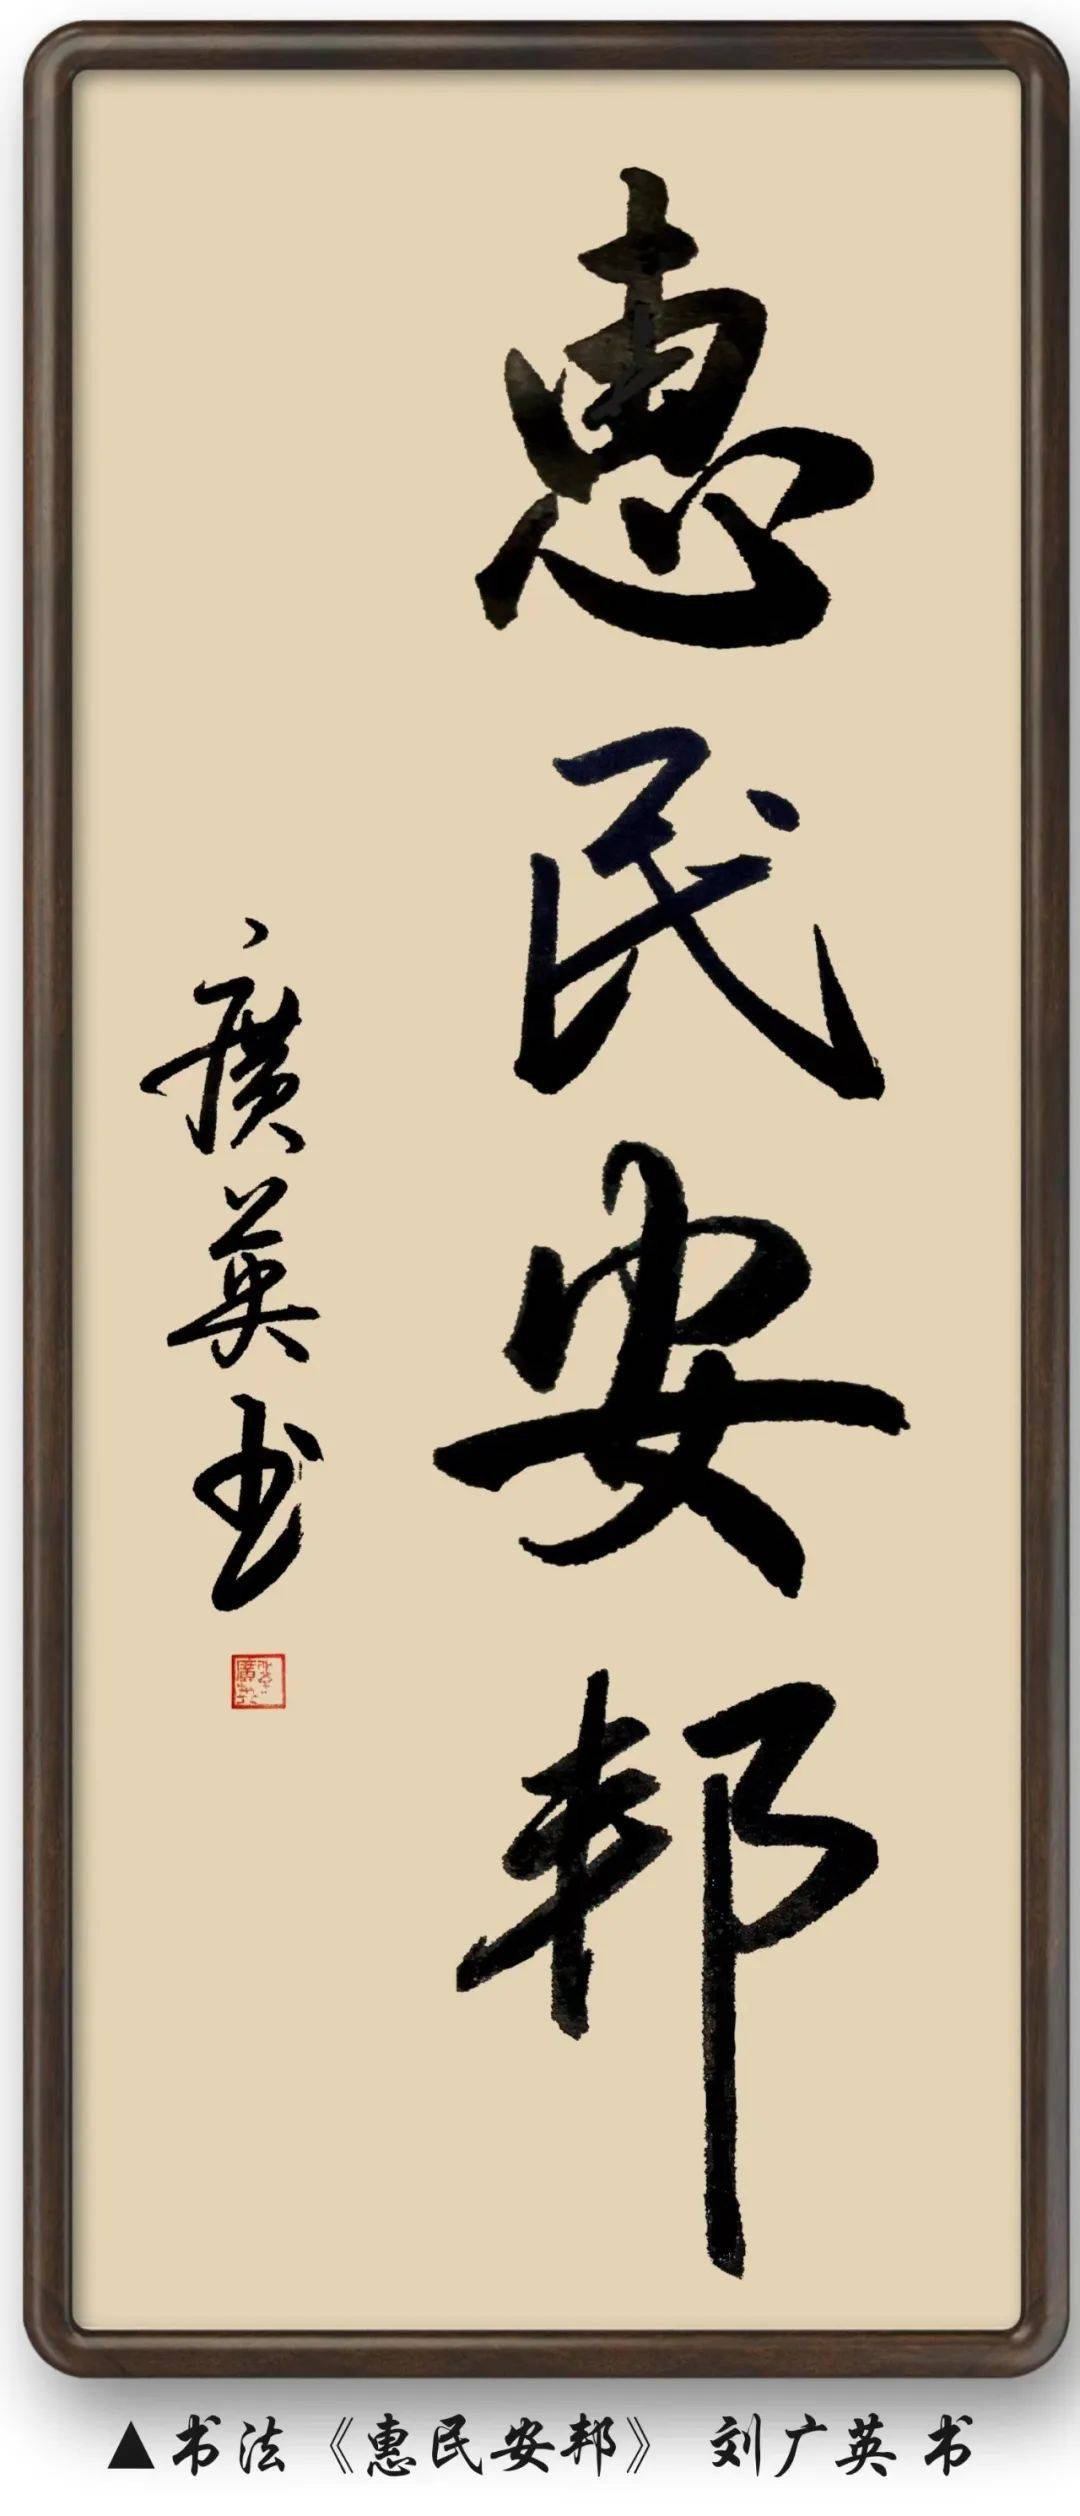 惠民安邦
廣英书
▲书法《惠民安邦》 刘广英 书